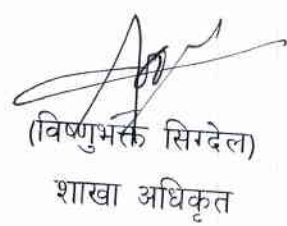 (विष्णुभक्त सिग्देल)
शाखा अधिकृत